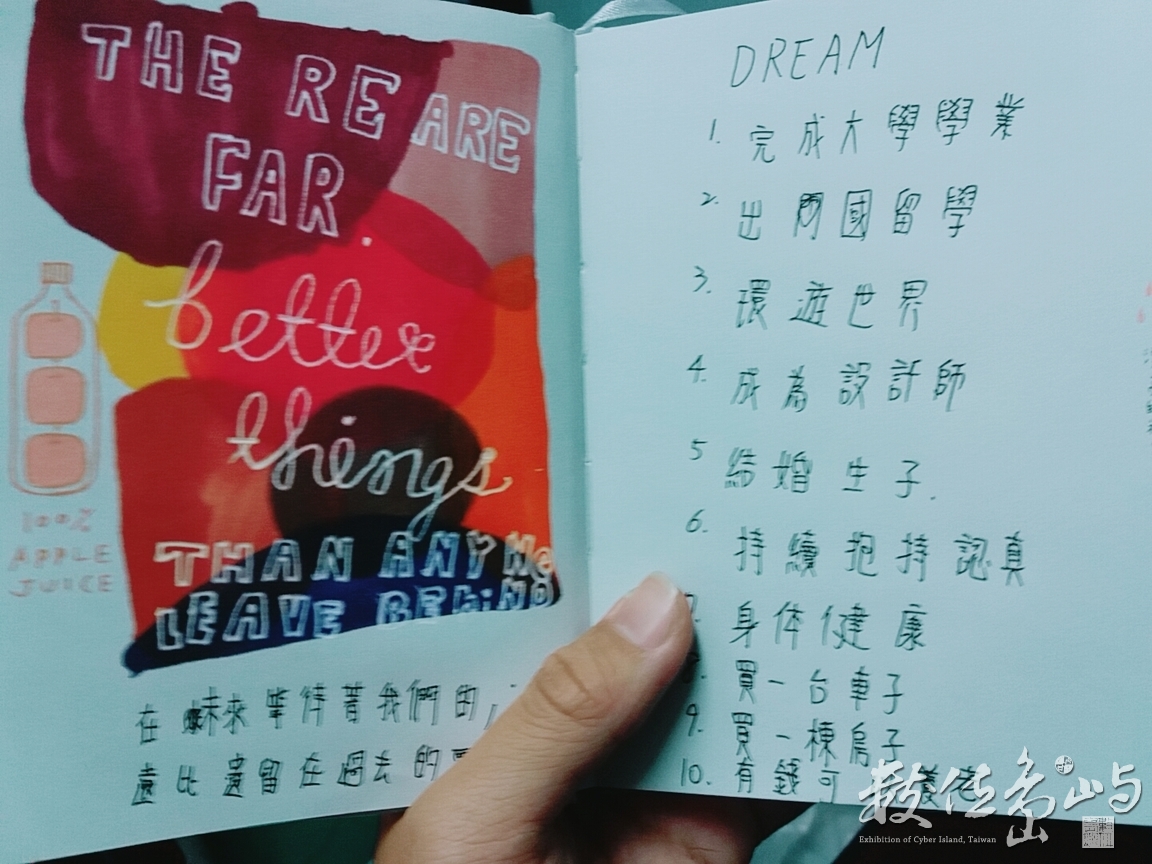 THE RE ARE
FAR.
better
things
THAN ANY
LEAVE BEHiND
100%
APPLE
JUICE
在 來 等待著我們的
遠比遺留在過去的
DREAM
1. 完成大學學業
2. 出 國留學
3. 環遊世界
4. 成為設計師
5 結婚生子.
6. 持續抱持認真
身体健康
買一台車子
9. 買一棟房子
10. 有錢可 養老
數位島嶼
Exhibition of Cyber Island, Taiwan